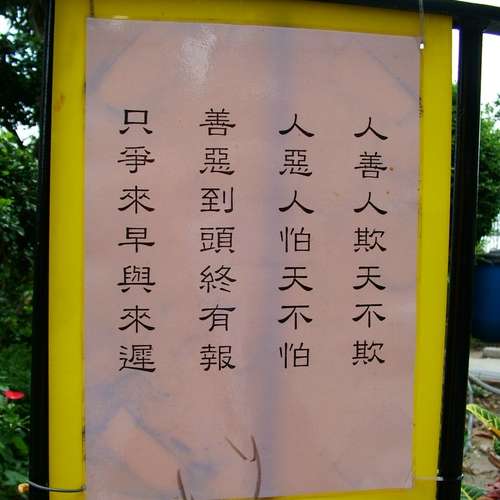 人善人欺天不欺
人惡人怕天不怕
善惡到頭終有報
只爭來早與來遲